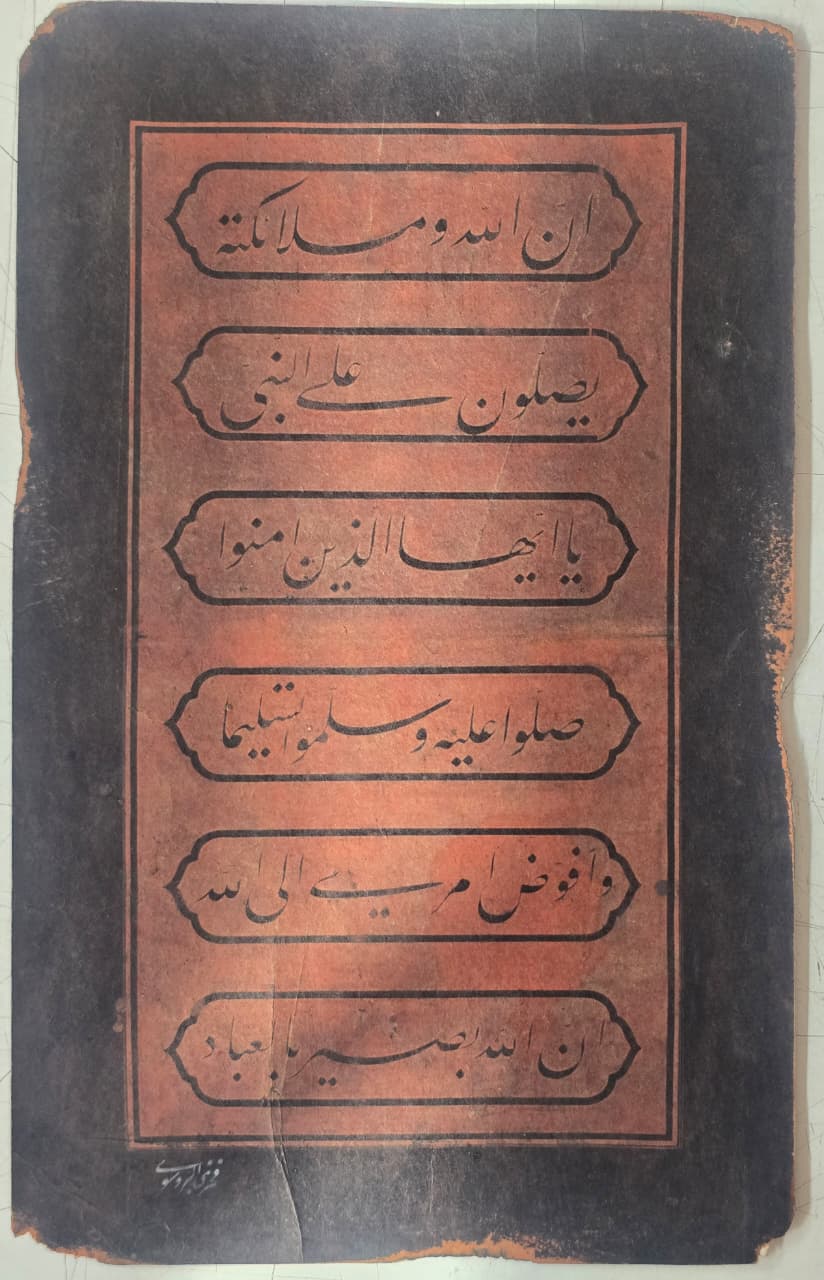 ان الله و ملائكتة
يصلون على النبى
يا ايها الذين امنوا
صلوا عليه و سلموا تسليما
و افوض امرى الى الله
ان الله بصير بالعباد